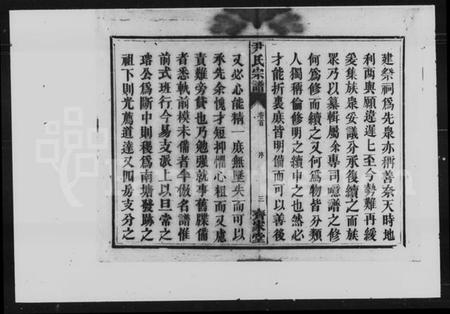 建祭祠爲先泉亦稍善奈天時地
利兩與願違遲七至今勢難再緩
爰集族眾妥議分承後續之而族
眾乃以纂輯屬余專司噫譜之修
何爲修而續之又何爲物皆分類
人獨稱倫修明之續申之也然必
才能折衷底皆明備而可以善後
尹氏宗譜
卷首
序
三
齊家堂
又必心能精一庶無歷失而可以
承先余愧才短抑懼心粗而又慮
責難旁貸也乃勉強就事舊牒備
者悉軌前模未備者乎倣名譜惟
前式班行今易支派上以旦當之
瑢公爲斷中則稅爲南塘發跡之
祖下則光薦道達又四房支分之